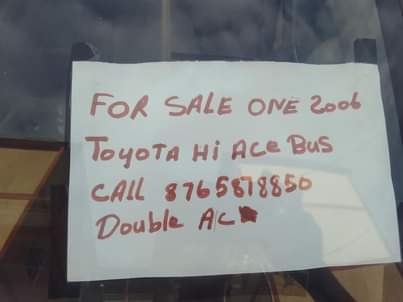 FOR SALE ONE 2006
TOYOTA Hi Ace Bus
CALL 8765878850
Double A/C